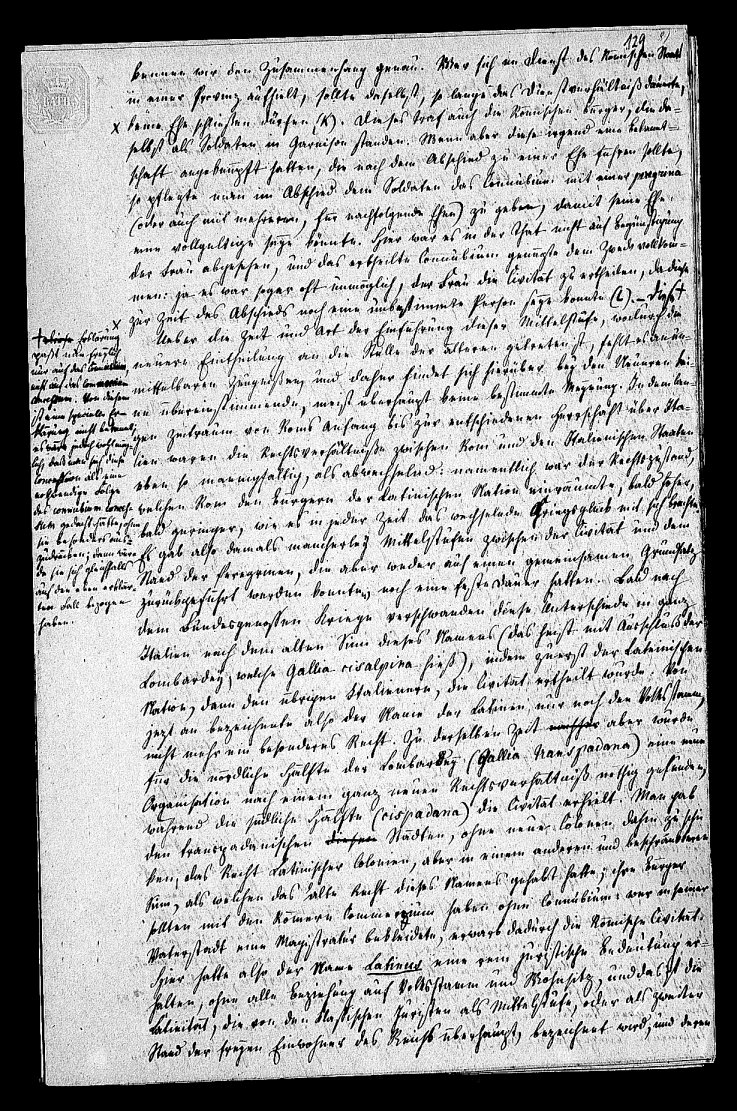 129
kennen wir den Zusammenhang genau. Wer sich im Dienst des Römischen Staats
in einer Provinz aufhielt, sollte daselbst, so lange das Dienstverhältniß dauerte,
keine Ehe schließen dürfen (k). Dieses traf auch die Römischen Bürger, die da-
selbst als Soldaten in Garnison standen. Wenn aber diese irgend eine Bekannt-
schaft angeknüpft hatten, die nach dem Abschied zu einer Ehe führen sollte,
so pflegte man im Abschied dem Soldaten das Connubium mit einer peregrina
(oder auch mit mehreren, für nachfolgende Ehen) zu geben, damit seine Ehe
eine vollgültige seyn könnte. Hier war es in der That nicht auf Begünstigung
der Frau abgesehen, und das ertheilte Connubium genügte dem Zweck vollkom-
men: ja es war sogar oft unmöglich, der Frau die Civität zu ertheilen, da diese
zur Zeit des Abschieds noch eine unbestimmte Person seyn konnte (l). – Diese
Ueber die Zeit und Art der Einführung dieser Mittelstufe, wodurch die
neuere Eintheilung an die Stelle der älteren getreten ist, fehlt es an un-
mittelbaren Zeugnissen, und daher findet sich hierüber bey den Neueren kei-
ne übereinstimmende, meist überhaupt keine bestimmte Meynung. In dem lan-
gen Zeitraum von Roms Anfang bis zur entschiedenen Herrschaft über Ita-
lien waren die Rechtsverhältnisse zwischen Rom und den Italienischen Staaten
eben so mannigfaltig, als abwechselnd: namentlich war der Rechtszustand,
welchen Rom den Bürgern der Latinischen Nation einräumte, bald höher,
bald geringer, wie es in jeder Zeit das wechselnde Kriegsglück mit sich brachte.
Es gab also damals mancherley Mittelstufen zwischen der Civität und dem
Stand der Peregrinen, die aber weder auf einen gemeinsamen Grundsatz
zurückgeführt werden konnten, noch eine feste Dauer hatten. Bald nach
dem Bundesgenossen Kriege verschwanden diese Unterschiede in ganz
Italien nach dem alten Sinn dieses Namens (das heist mit Ausschluß der
Lombardey, welche Gallia cisalpina hieß), indem zuerst der Lateinischen
Nation, dann den übrigen Italienern, die Civität ertheilt wurde. Von
jezt an bezeichnete also der Name der Latinen nur noch den Volksstamm,
nicht mehr ein besonderes Recht. Zu derselben Zeit aber wurde
für die nördliche Hälfte der Lombardey (Gallia transpadana) eine neue
Organisation nach einem ganz neuen Rechtsverhältniß nöthig gefunden,
während die südliche Hälfte (cispadana) die Civität erhielt. Man gab
den transpadanischen diesen Städten, ohne neue Colonen dahin zu schi-
cken, das Recht Latinischer Colonien, aber in einem anderen und beschränkteren
Sinn, als welchen das alte Recht dieses Namens gehabt hatte; ihre Bürger
sollten mit den Römern Commercium haben ohne Connubium: wer in seiner
Vaterstadt eine Magistratur bekleidete, erwarb dadurch die Römische Civität.
Hier hatte also der Name Latinus eine rein juristische Bedeutung er-
halten, ohne alle Beziehung auf Volksstamm und Wohnsitz, und das ist die
Latinität, die von den klassischen Juristen als Mittelstufe, oder als zweiter
Stand der freyen Einwohner des Reichs überhaupt, bezeichnet wird, und deren
Erklärung
paßt nun freylich
nur auf das Connubium,
nicht auf das
Von diesem
ist eine specielle Er-
klärung nicht bekannt,
es wäre jedoch möglich,
daß man sich diese
Concession als eine
nothwendige Folge
des connubium
gedacht hätte, ohne
sie besonders aus-
zudrücken; dann wür-
de sie sich gleichfalls
auf den eben erklär-
ten Fall bezogen
haben.